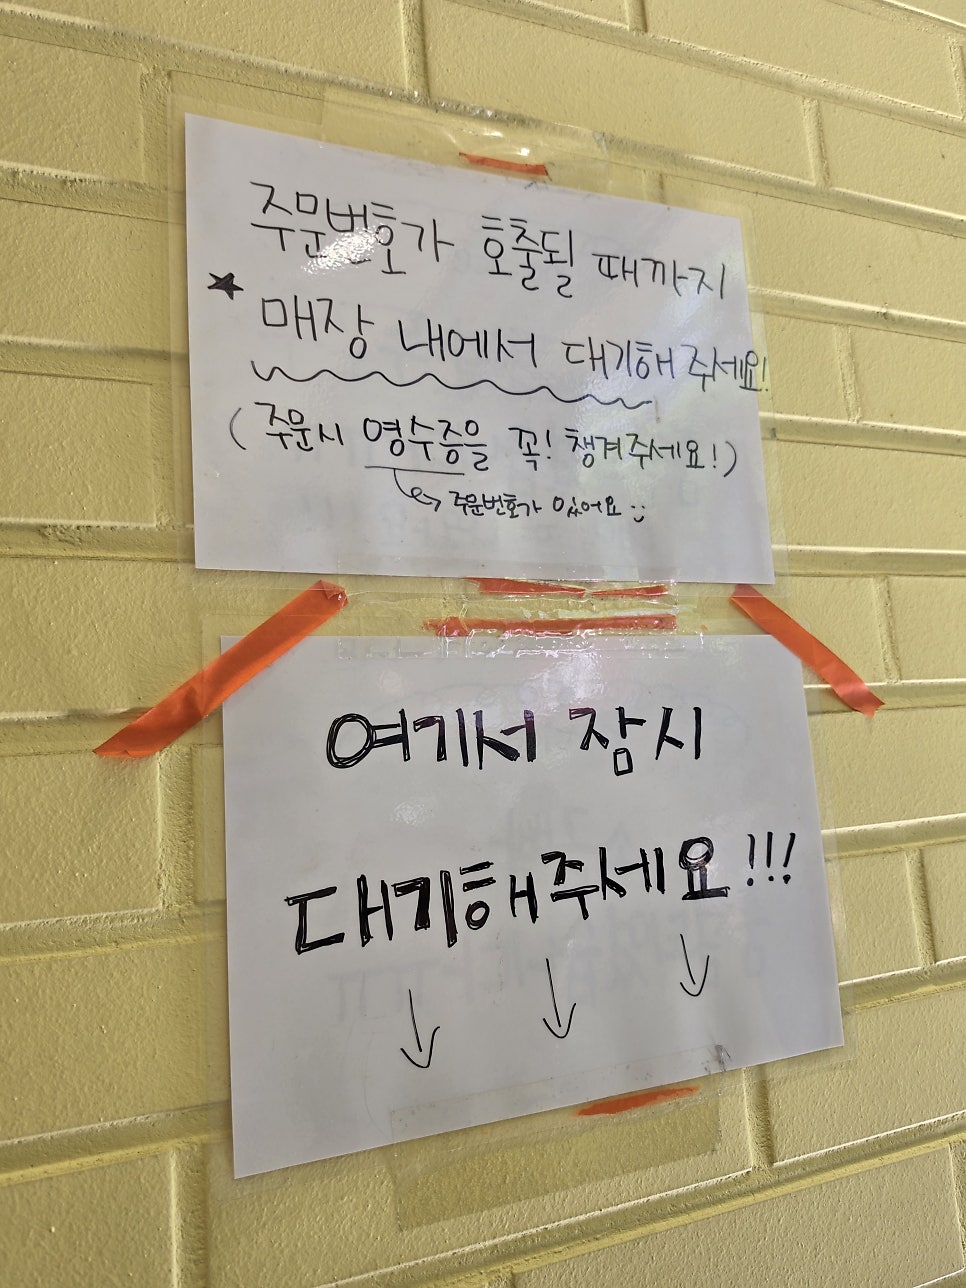 주문번호가 호출될 때까지
★ 매장 내에서 대기해주세요!
(주문시 영수증을 꼭! 챙겨주세요!)
↳ 주문번호가 있어요 :)
여기서 잠시
대기해주세요!!!
↓ ↓ ↓